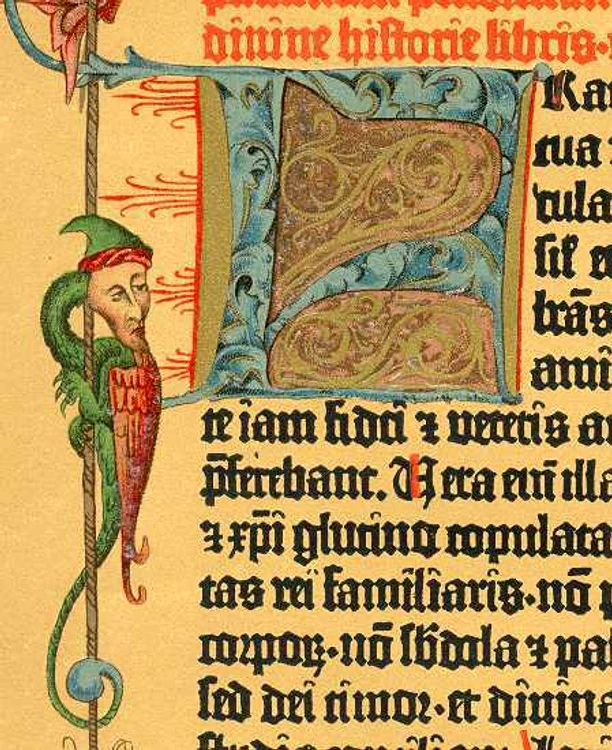 diuine historie libris·
FRa
tua ⁊
cula
sił e
brās
ami
te iam fidei ⁊ veteris a
p̄ferebant. Vera eni̅ illa
⁊ xp̄i glutino copulata
tas rei familiaris·nō
corpoꝝ·nō sb̄dola ⁊ pa
sed dei timor·et diuina